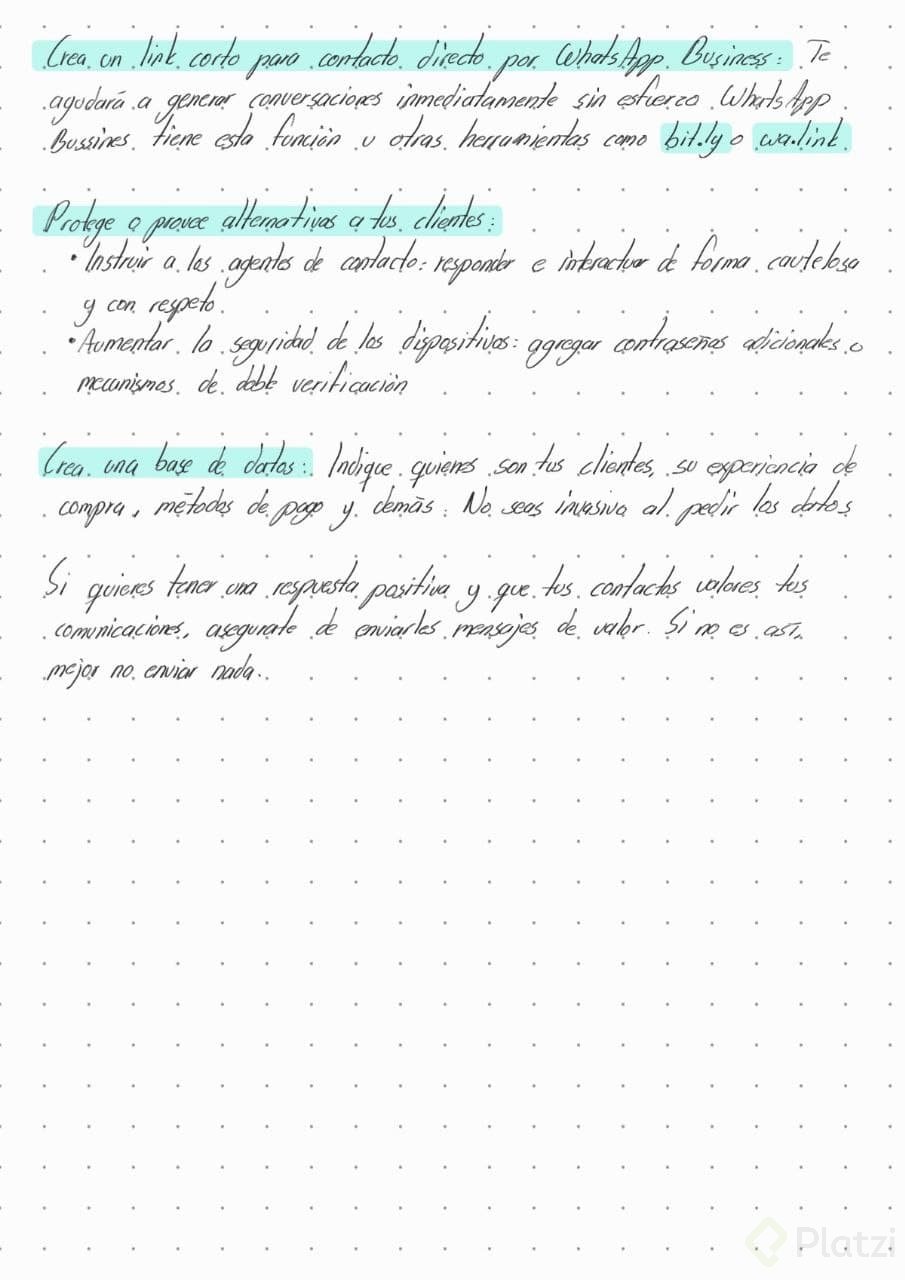 Crea un link corto para contacto directo por WhatsApp Business: Te
ayudará a generar conversaciones inmediatamente sin esfuerzo WhatsApp
Bussines tiene esta función u otras herramientas como bit.ly o wa.link
Protege o provee alternativas a tus clientes:
• Instruir a los agentes de contacto: responder e interactuar de forma cautelosa
y con respeto.
• Aumentar la seguridad de los dispositivos: agregar contraseñas adicionales o
mecanismos de doble verificación
Crea una base de datos: Indique quienes son tus clientes, su experiencia de
compra, métodos de pago y demás. No seas invasivo al pedir los datos
Si quieres tener una respuesta positiva y que tus contactos valores tus
comunicaciones, asegurate de enviarles mensajes de valor. Si no es así,
mejor no enviar nada.
Platzi